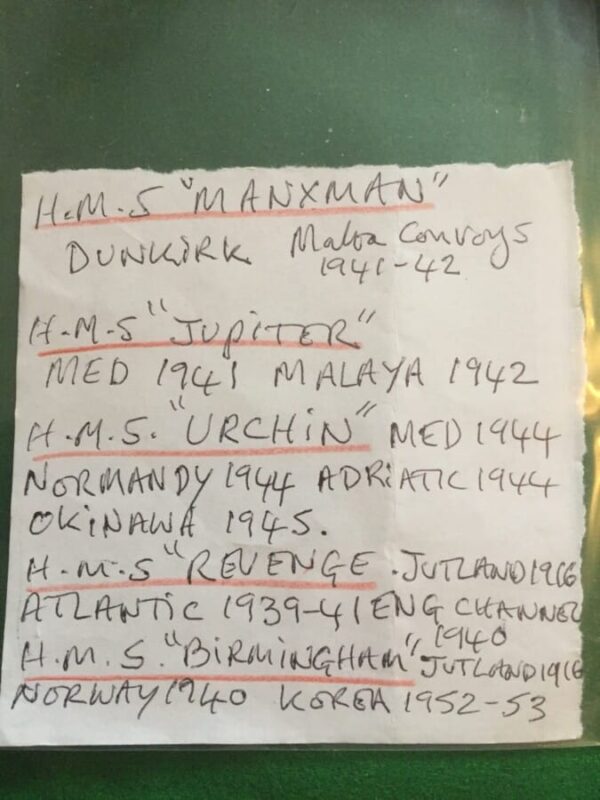 H.M.S "MANXMAN"
DUNKIRK Malta Convoys
1941-42
H.M.S "JUPITER"
MED 1941 MALAYA 1942
H.M.S. "URCHIN" MED 1944
NORMANDY 1944 ADRIATIC 1944
OKINAWA 1945.
H.M.S "REVENGE. JUTLAND 1916
ATLANTIC 1939-41 ENG CHANNEL
1940
H.M.S. "BIRMINGHAM" JUTLAND 1916
NORWAY 1940 KOREA 1952-53